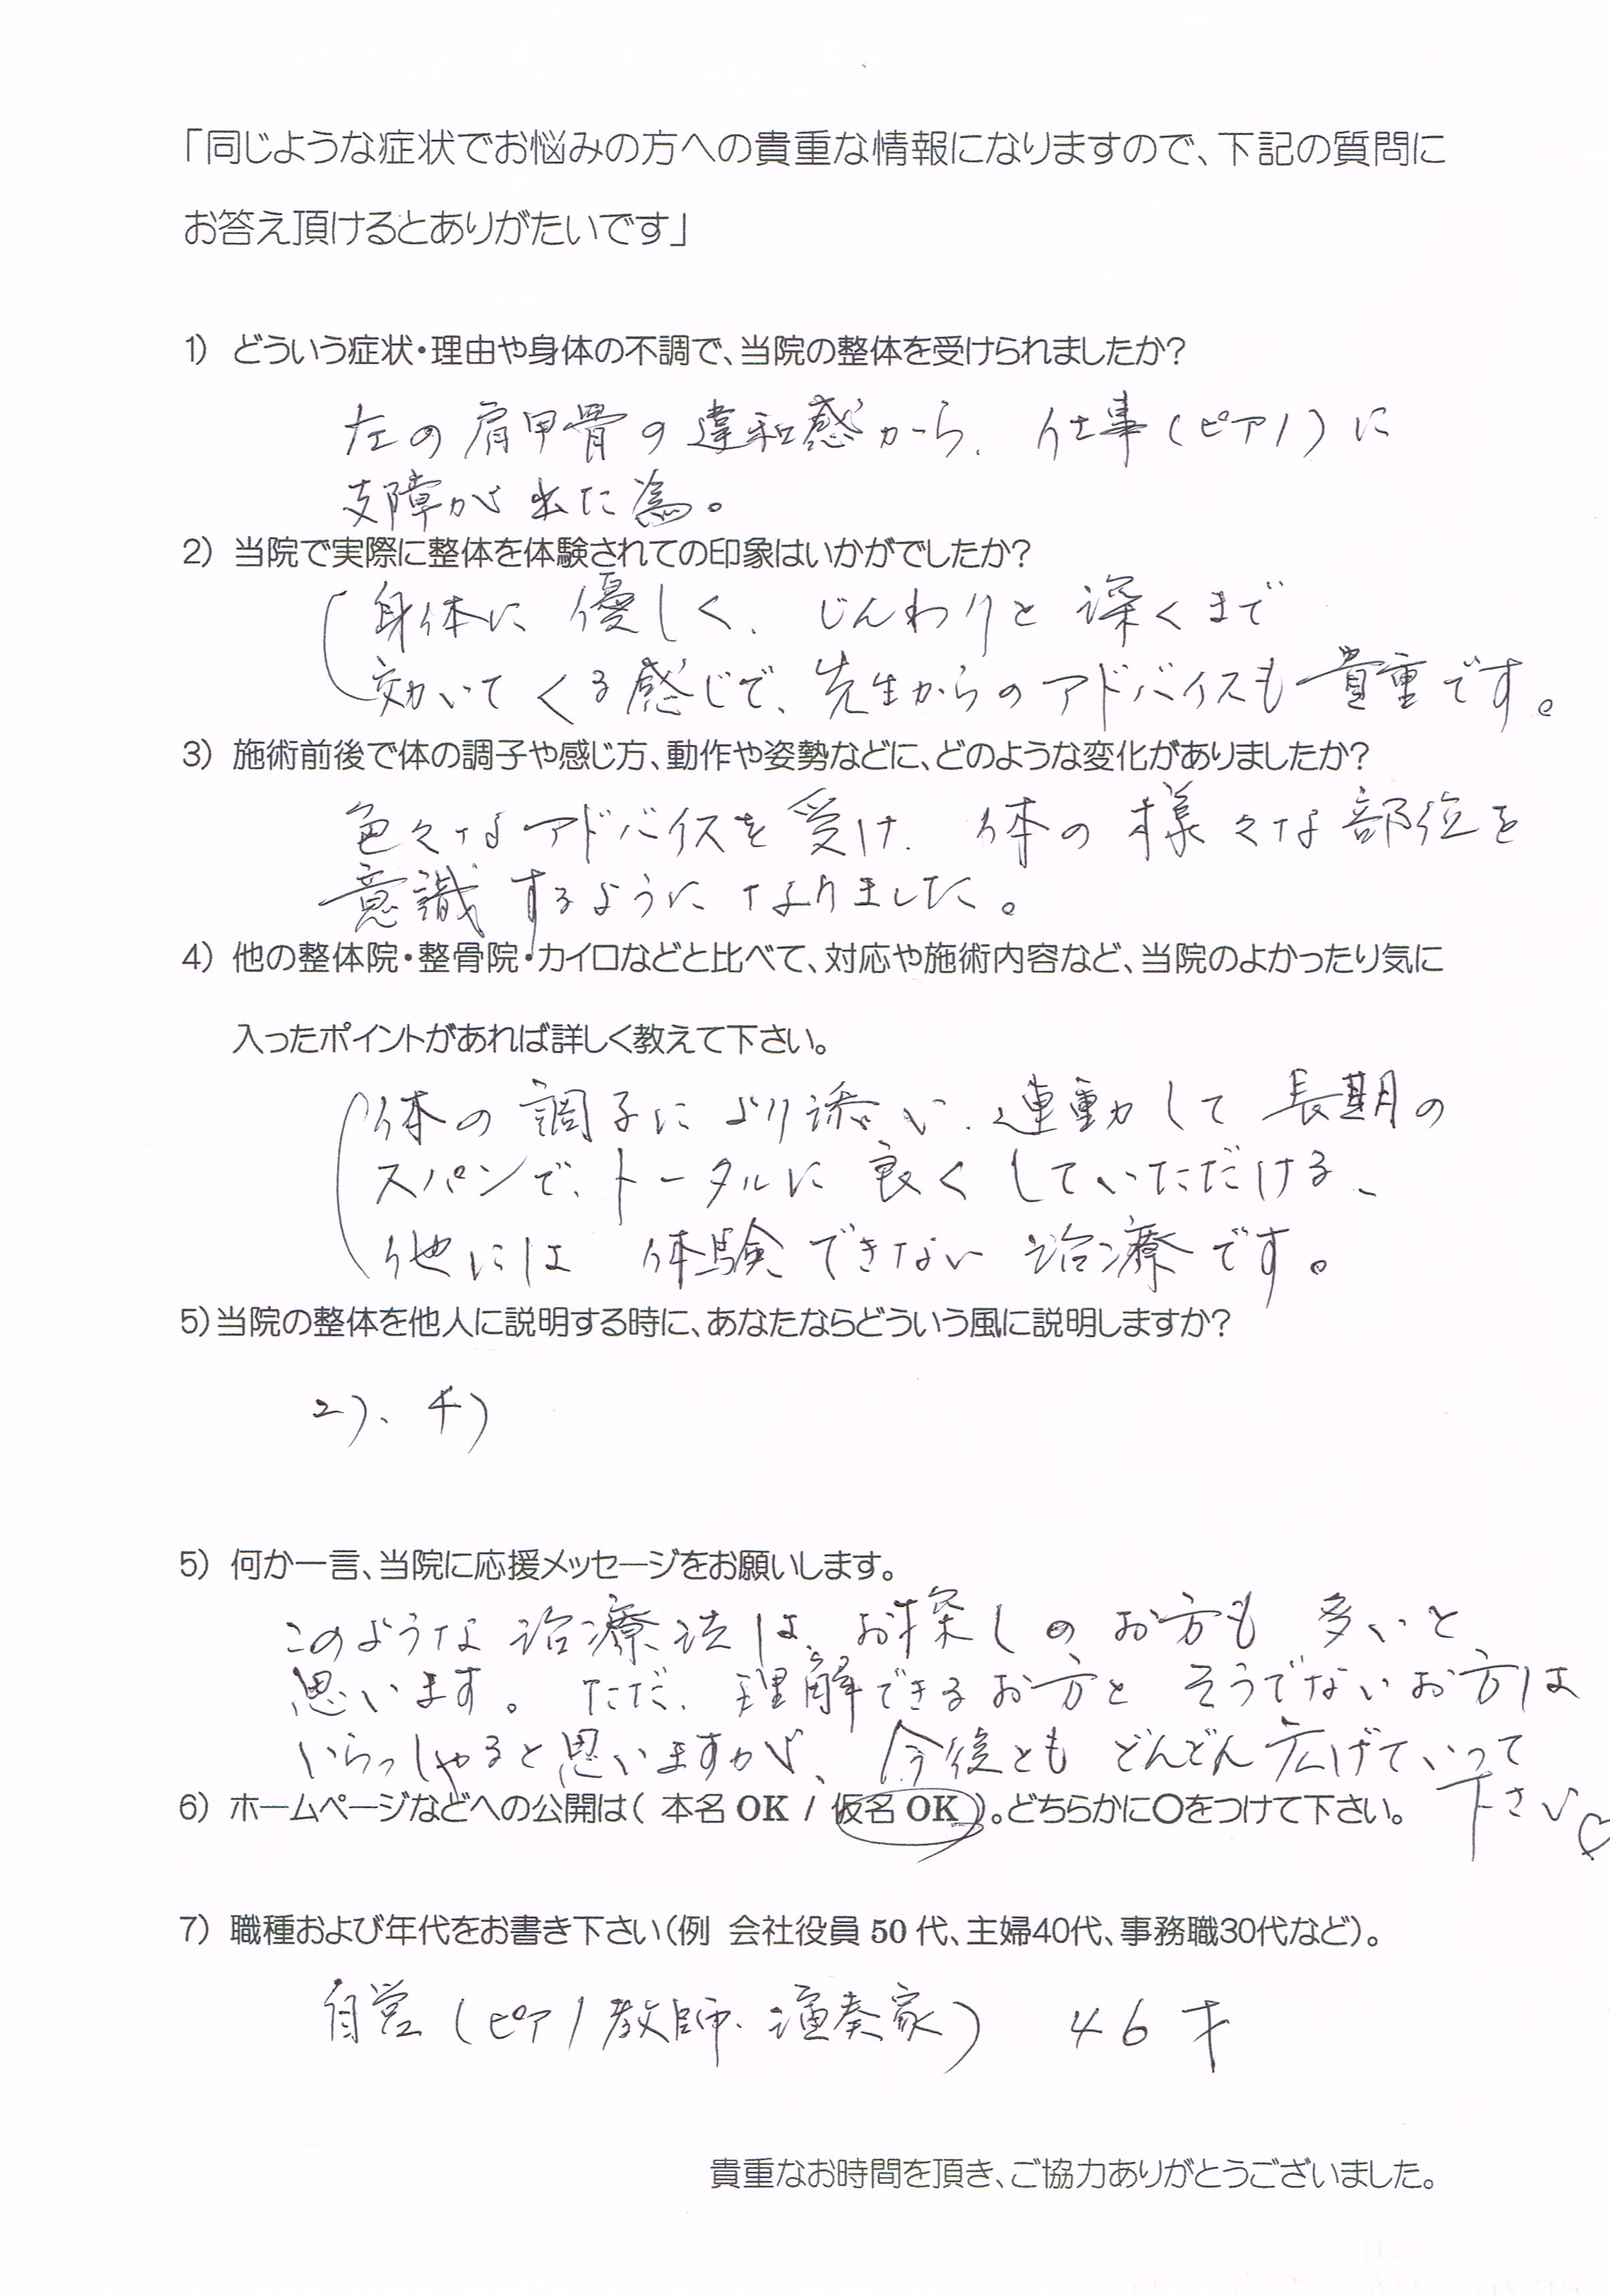 「同じような症状でお悩みの方への貴重な情報になりますので、下記の質問に
お答え頂けるとありがたいです」
1) どういう症状・理由や身体の不調で、当院の整体を受けられましたか?
左の肩甲骨の違和感から、仕事(ピアノ)に
支障が出た為。
2) 当院で実際に整体を体験されての印象はいかがでしたか?
身体に優しく、じんわりと深くまで
効いてくる感じで、先生からのアドバイスも貴重です。
3) 施術前後で体の調子や感じ方、動作や姿勢などに、どのような変化がありましたか?
色々なアドバイスを受け、体の様々な部位を
意識するようになりました。
4) 他の整体院・整骨院・カイロなどと比べて、対応や施術内容など、当院のよかったり気に
入ったポイントがあれば詳しく教えて下さい。
体の調子により添い、連動して長期の
スパンで、トータルに良くしていただける、
他には体験できない治療です。
5)当院の整体を他人に説明する時に、あなたならどういう風に説明しますか?
2)、4)
5) 何か一言、当院に応援メッセージをお願いします。
このような治療法は、お探しのお方も多いと
思います。ただ、理解できるお方とそうでないお方は
いらっしゃると思いますが、今後ともどんどん広げていって
下さい♡
6) ホームページなどへの公開は( 本名 OK / 仮名 OK )。どちらかに〇をつけて下さい。
7) 職種および年代をお書き下さい(例 会社役員 50 代、主婦40代、事務職30代など)。
自営(ピアノ教師、演奏家) 46才
貴重なお時間を頂き、ご協力ありがとうございました。